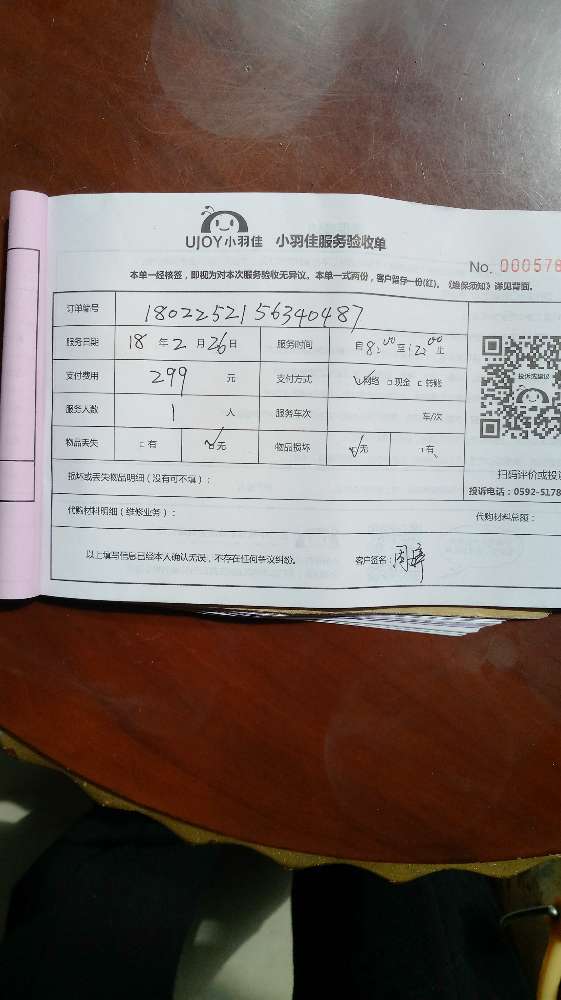 UJOY小羽佳 小羽佳服务验收单
No. 000578
本单一经核签，即视为对本次服务验收无异议。本单一式两份，客户留存一份(红)。《维保须知》详见背面。
订单编号 1802252156340487
服务日期 18 年 2 月 26 日 服务时间 自 8:00 至 12:00 止
支付费用 299 元 支付方式 ☑网络 □现金 □转账
服务人数 1 人 服务车次 车/次
物品丢失 □有 ☑无 物品损坏 ☑无 □有
投诉或建议
扫码评价或投诉
损坏或丢失物品明细（没有可不填）：
投诉电话：0592-5178
代购材料明细（维修业务）： 代购材料总额：
以上填写信息已经本人确认无误，不存在任何争议纠纷。 客户签名：周婷